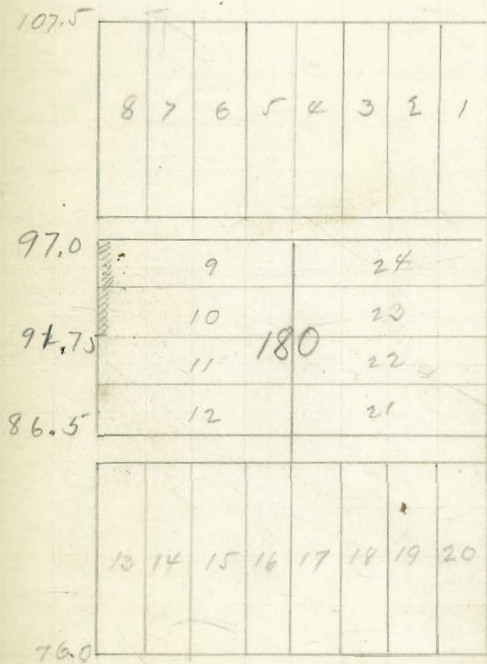 107.5
8 7 6 5 4 3 2 1
97.0
9 24
10 23
91.75
180
11 22
86.5
12 21
13 14 15 16 17 18 19 20
76.0